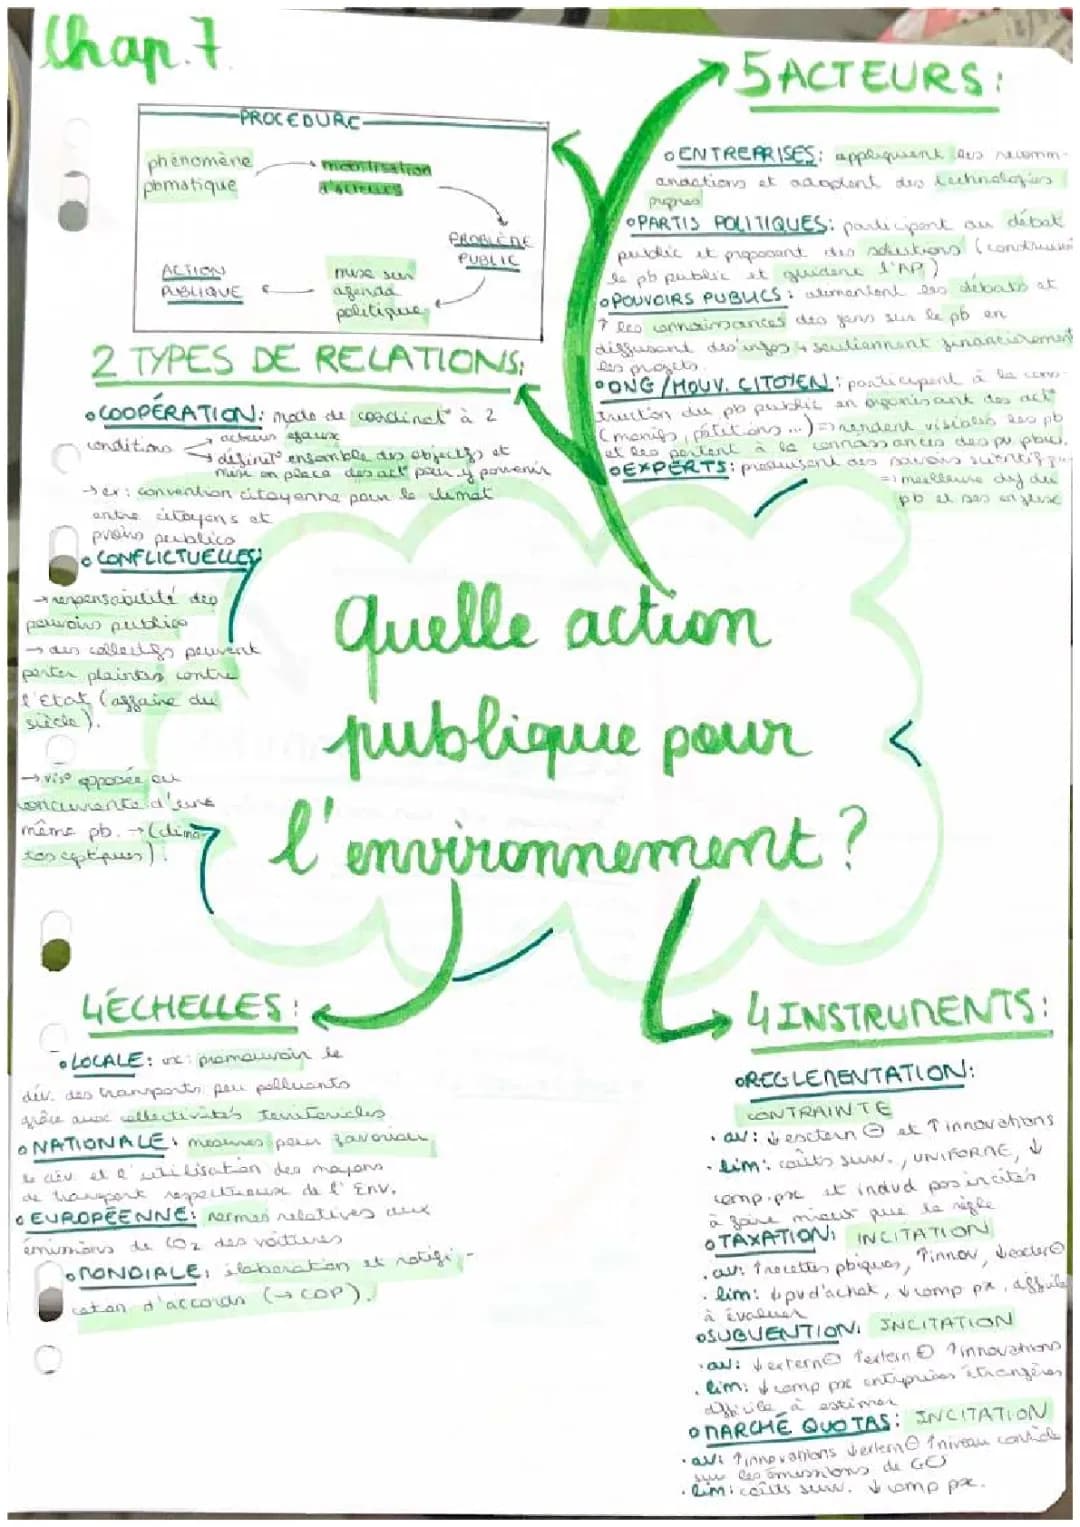 Chap. 7
PROCEDURE
phénomène
pbmatique
mobilisation
d'acteurs
PROBLÈME
PUBLIC
mise sur
agenda
politique
ACTION
PUBLIQUE
2 TYPES DE RELATIONS:
COOPÉRATION: mode de coordinat° à 2
conditions
acteurs égaux
définit° ensemble des objectifs et
mise en place des act° pour y parvenir
→ ex: convention citoyenne pour le climat
entre citoyens et
pvoirs publics
CONFLICTUELLES:
→ responsabilité des
pouvoirs publics
→ des collectifs peuvent
porter plaintes contre
l'Etat (affaire du
siècle).
→ vis° opposée ou
concurrente d'une
même pb. → (climato
sceptiques).
5 ACTEURS:
ENTREPRISES: appliquent les recomm-
andations et adoptent des technologies
propres
PARTIS POLITIQUES: participent au débat
public et proposant des solutions (construisent
le pb public et guident l'AP)
POUVOIRS PUBLICS: alimentent les débats et
↑ les connaissances des gens sur le pb en
diffusant des infos + soutiennent financièrement
les projets.
ONG / MOUV. CITOYEN: participent à la cons-
truct°on du pb public en organisant des act°
(manifs, pétitions ...) ⇒ rendent visibles les pb
et les portent à la connaissances des pv pbics.
EXPERTS: produisent des savoirs scientifiqu
⇒ meilleure du
pb et ses enjeux
Quelle action
publique pour
l'environnement ?
4 ÉCHELLES:
LOCALE: ex: promouvoir le
dév. des transports peu polluants
grâce aux collectivités territoriales
NATIONALE: mesures pour favoriser
le dév et l'utilisation des moyens
de transport respectueux de l'Env.
EUROPÉENNE: normes relatives aux
émissions de CO2 des voitures
MONDIALE: élaboration et ratifi-
cation d'accords (→ COP).
4 INSTRUMENTS:
REGLEMENTATION:
CONTRAINTE
• av: ↓ extern ⊖ et ↑ innovations
• lim: coûts surv., UNIFORME, ↓
comp. px et indvd pas incités
à faire mieux que la règle
TAXATION: INCITATION
• av: ↑ recettes pbiques, ↑ innov, ↓ exter ⊖
• lim: ↓ pv d'achat, ↓ comp px, difficile
à évaluer
SUBVENTION: INCITATION
• av: ↓ extern ⊖ ↑ extern ⊕ ↑ innovations
• lim: ↓ comp px entiprises étrangères
difficile à estimer
MARCHÉ QUOTAS: INCITATION
• av: ↑ innovations ↓ extern ⊖ ↑ niveau contrôle
sur les émissions de GES
• lim: coûts surv. ↓ comp px.